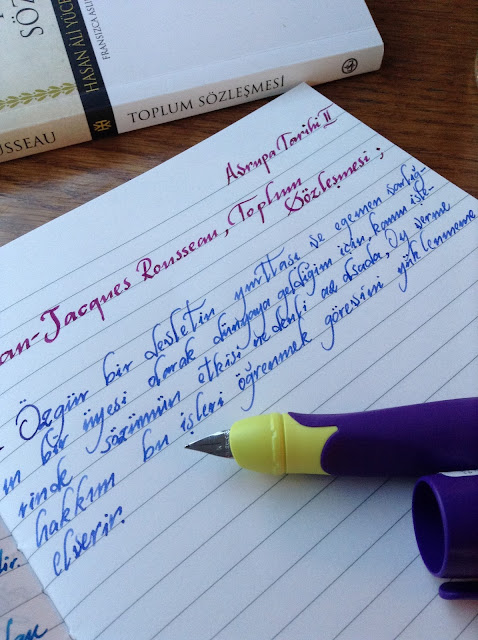 SÖZ
HASAN ÂLİ YÜCE
FRANSIZCA ASLI
USSEAU
TOPLUM SÖZLEŞMESİ
Avrupa Tarihi II
an-Jacques Rousseau, Toplum
Sözleşmesi;
Özgür bir devletin yurttaşı ve egemen varlığ-
ın bir üyesi olarak dünyaya geldiğim için, kamu işle-
rinde sözümün etkisi ne denli az olsada, Oy verme
hakkım bu işleri öğrenmek görevini yüklenmeme
elverir.
dir.